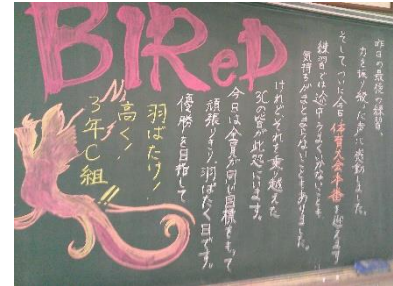 BIReD
昨日の最後の練習。
力を振り絞った声に感動しました。
そして、ついに今日体育大会本番を迎えます
練習では途中うまくいかないことも
気持ちがまとまらないこともありました。
けれどそれを乗り越えた
3Cの皆が此処にいます。
今日は全員が同じ目標をもって
頑張りきり、羽ばたく日です。
優勝を目指して
羽ばたけ!
高く!
3年C組!!